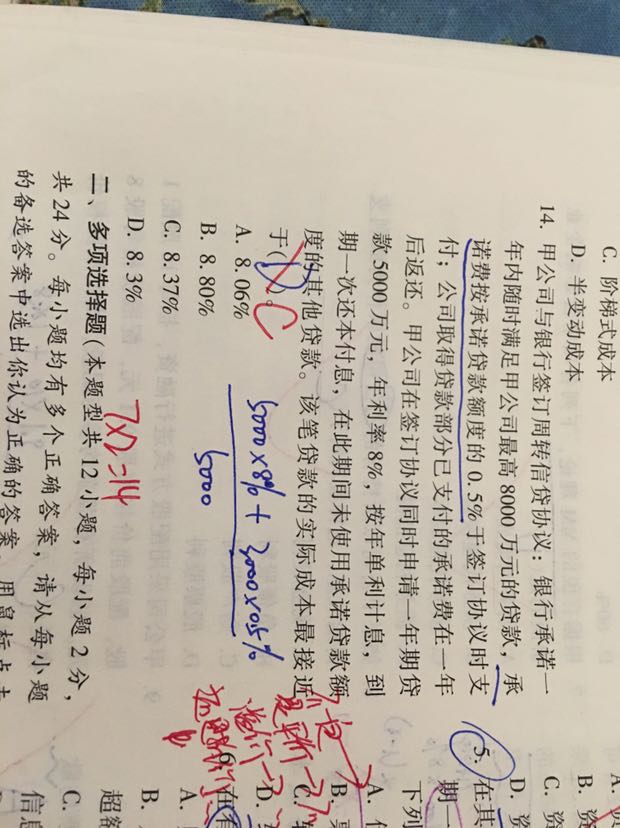 C. 阶梯式成本
D. 半变动成本
14. 甲公司与银行签订周转信贷协议：银行承诺一
年内随时满足甲公司最高8000万元的贷款，承
诺费按承诺贷款额度的0.5%于签订协议时支
付；公司取得贷款部分已支付的承诺费在一年
后返还。甲公司在签订协议同时申请一年期贷
款5000万元，年利率8%，按年单利计息，到
期一次还本付息，在此期间未使用承诺贷款额
度的其他贷款。该笔贷款的实际成本最接近
于( D )。 C
A. 8.06%
B. 8.80%
C. 8.37%
D. 8.3%
5000×8% + 3000×0.5%
5000
7×2=14
二、多项选择题(本题型共12小题，每小题2分，
共24分。每小题均有多个正确答案，请从每小题
的备选答案中选出你认为正确的答案，用鼠标点击
B. 资
C. 资
D. 资
5. 在其
期一
下列
A.
B.
C.
D.
6. 在
A.
B.
超客
C.
信息